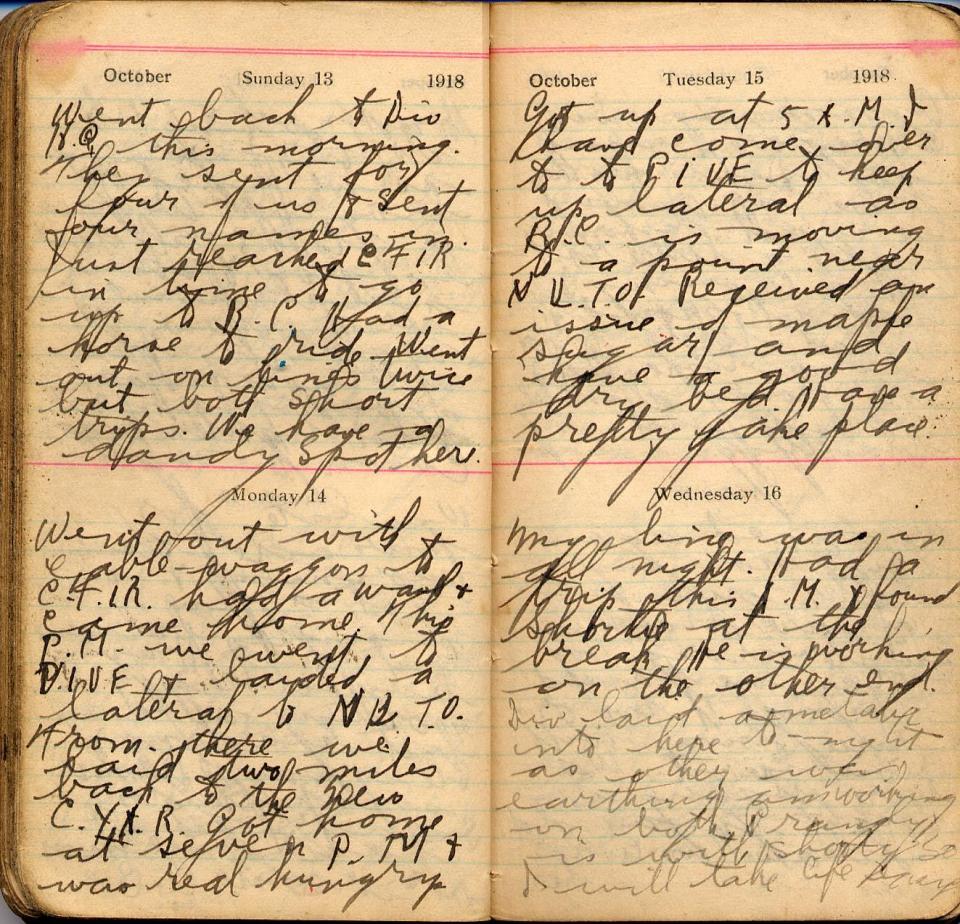 October Sunday 13 1918
Went back to Div
H.Q this morning.
They sent for
four of us & sent
four names in.
Just reached C F I R
in time to go
up to B. C. Had a
horse to ride. Went
out on lines twice
but both short
trips. We have a
dandy spot her.
Monday 14
Went out with
Cable waggon to
C.F.I.R. had a wash &
came home. This
P.M. we went to
DIVE laided a
lateral to NUTO.
From there we
laid two miles
back to the new
C. R. Got home
at seven P. M &
was real hungry
October Tuesday 15 1918
Got up at 5 A.M I
have come over
to to DIVE to keep
up lateral as
B.C. is moving
to a point near
N U.T.O. Received an
issue of maple
sugar and
have a good
dry bed. Have a
pretty jake place.
Wednesday 16
My line was in
all night. Had a
trip this A.M. & found
Shortie at the
break. He is working
on the other end.
Div laid a
into here to-night
as other was
earthing am working
on both.
is with Shorty so
I will take life easy